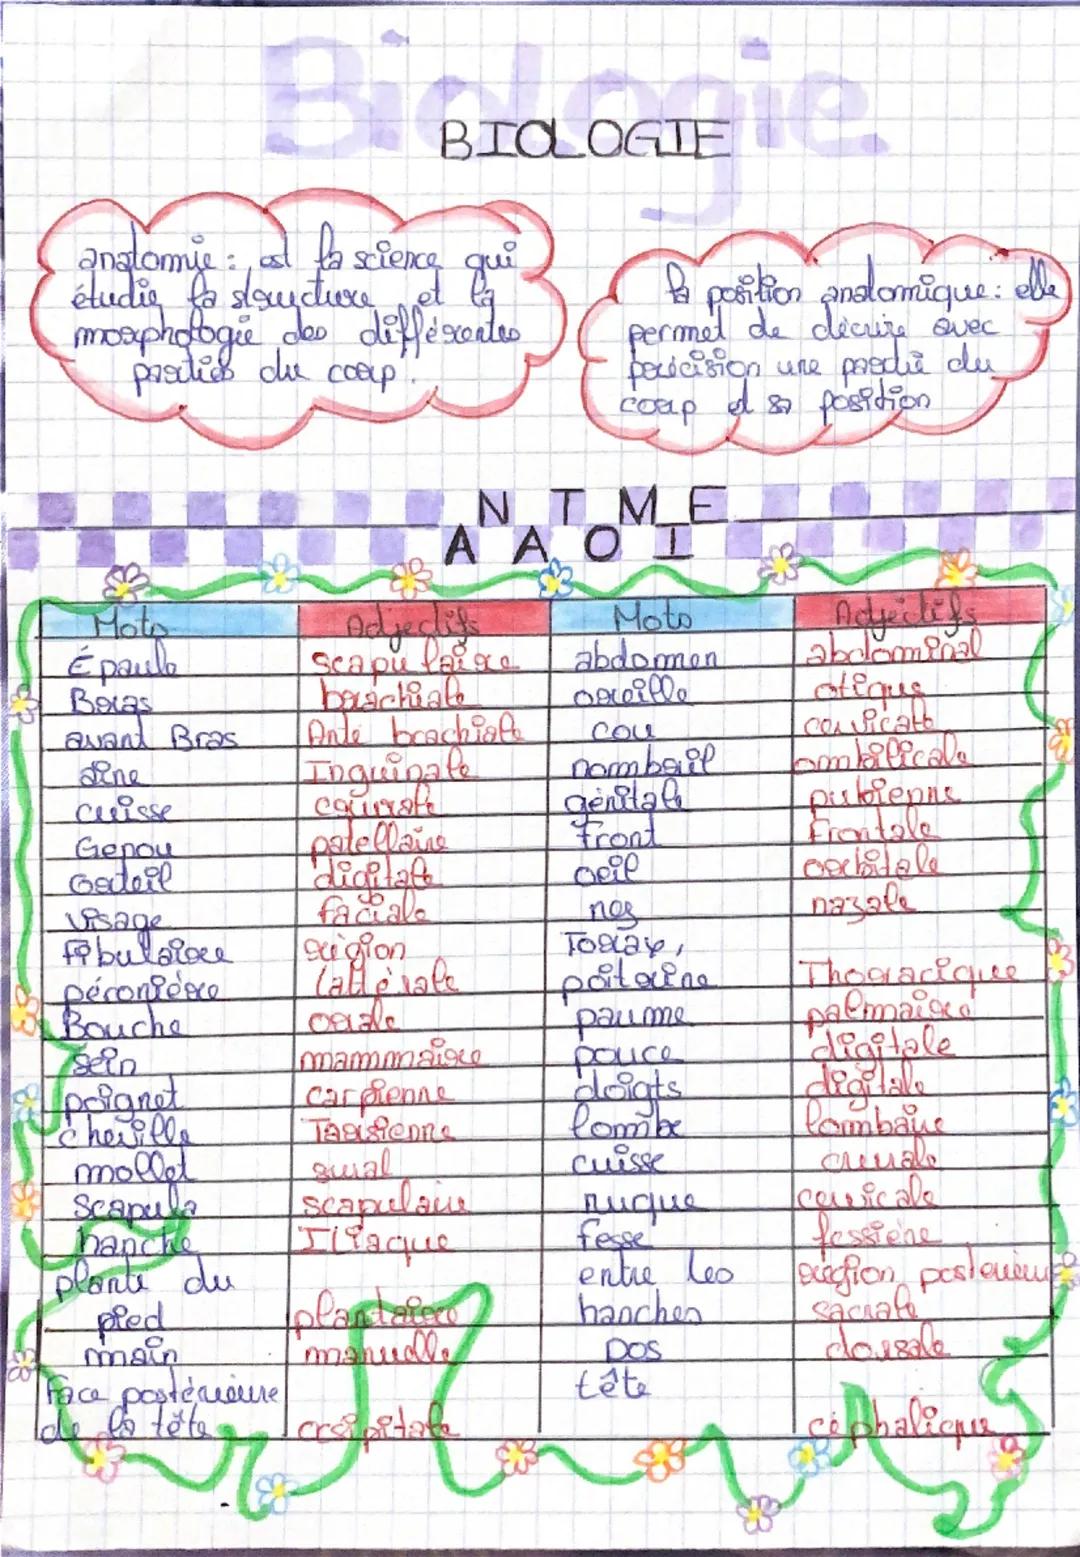 Biologie
BIOLOGIE
anatomie : est la science qui
étudie la structure et la
morphologie des différentes
parties du corp.
la position anatomique : elle
permet de décrire avec
précision une partie du
corp et sa position
ANATOMIE
Mots Adjectifs Mots Adjectifs
Épaule scapulaire abdomen abdominal
Bras brachiale oreille otique
avant Bras Anté brachiale cou cervicale
aine Inguinale nombril ombilicale
cuisse crurale génitale pubienne
Genou patellaire front Frontale
Orteil digitale oeil orbitale
Visage faciale nez nazale
Fibulaire région Torax,
péronière latérale poitrine Thoracique
Bouche orale paume palmaire
sein mammaire pouce digitale
poignet carpienne doigts digitale
cheville Tarsienne lombe lombaire
mollet sural cuisse crurale
scapula scapulaire nuque cervicale
hanche Iliaque fesse fessière
plante du entre les région postérieure
pied plantaire hanches sacrale
main manuelle Dos dorsale
Face postérieure tête
de la tête occipitale céphalique